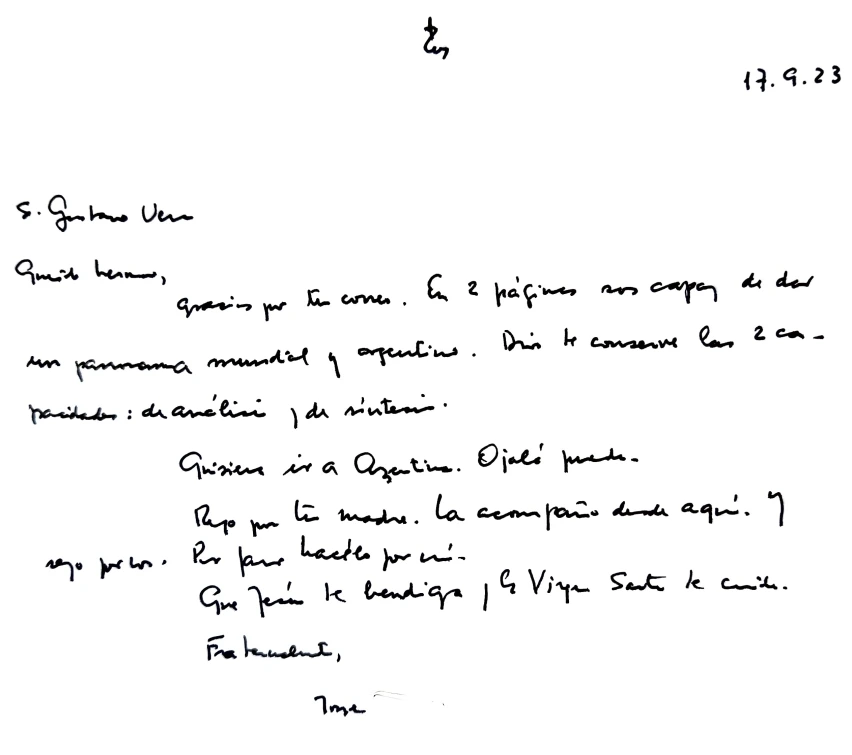 17.9.23
S. Gustavo Vera
Querido hermano,
gracias por tu correo. En 2 páginas sos capaz de dar
un panorama mundial y argentino. Dios te conserve las 2 ca-
pacidades: de análisis y de síntesis.
Quisiera ir a Argentina. Ojalá pueda.
Rezo por tu madre. La acompaño desde aquí. Y
rezo por vos. Por favor hacélo por mí.
Que Jesús te bendiga y la Virgen Santa te cuide.
Fraternalmente,
Jorge